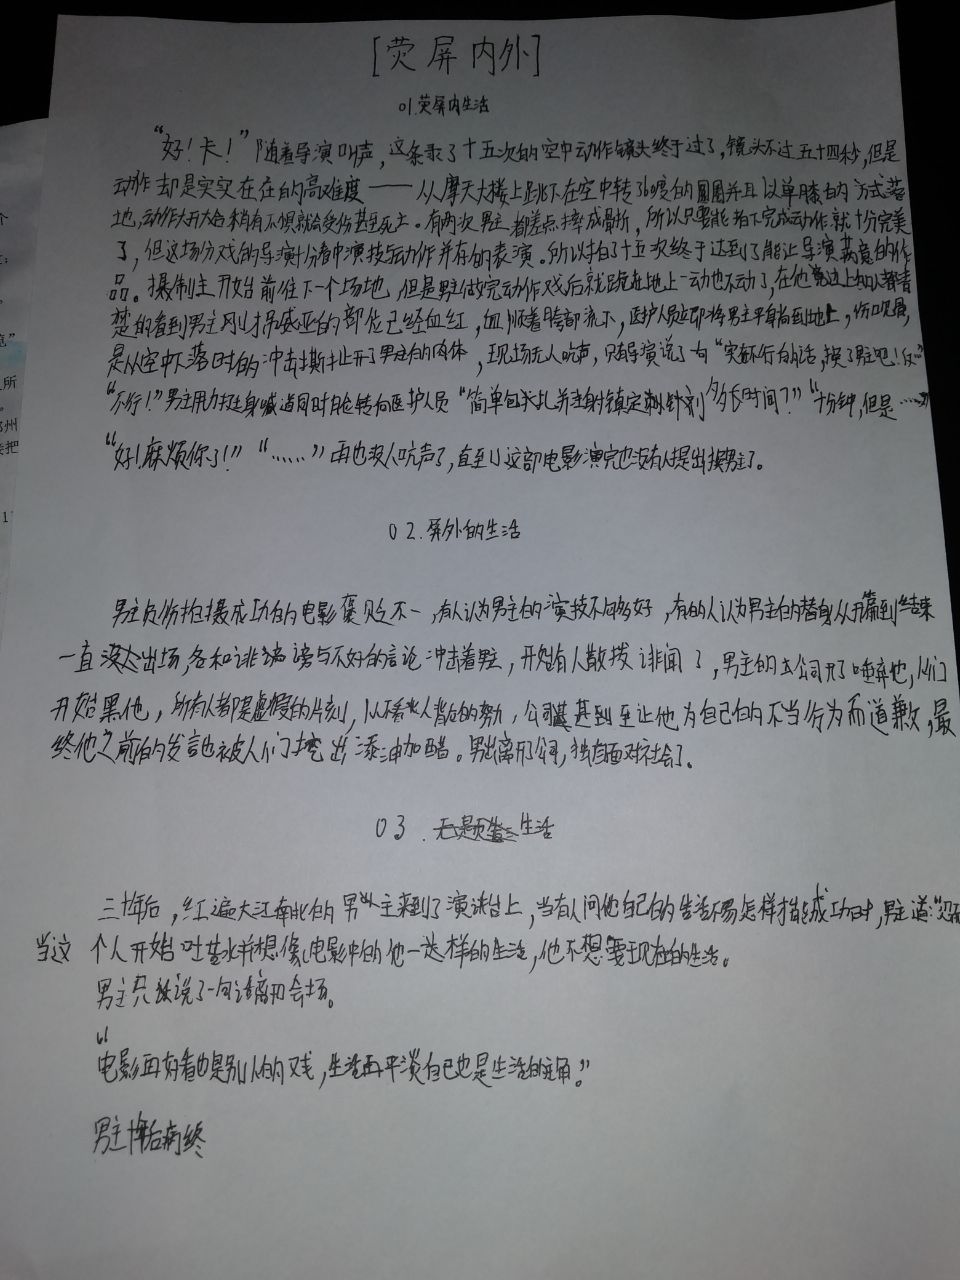 [荧屏内外]
01.荧屏内生活
“好！卡！”随着导演叫声，这条录了十五次的空中动作镜头终于过了，镜头不过五十四秒，但是
动作却是实实在在的高难度——从摩天大楼上跳下在空中转360度的圆圈并且以单膝的方式落
地，动作大开大合稍有不慎就会受伤甚至死亡。有两次男主都差点摔成骨折，所以只要能拍下完成动作就十分完美
了，但这场分戏的导演十分看中演技与动作并存的表演。所以拍了十五次终于达到了能让导演满意的作
品。摄制主开始前往下一个场地，但是男主做完动作戏后就跪在地上一动也不动了，在他旁边上的人都清
楚的看到男主刚才吊威亚的部位已经血红，血顺着胯部流下，医护人员立即将男主平躺到地上，伤口
是从空中下落时的冲击撕扯开了男主的肉体，现场无人吭声，只有导演说了句“实在不行的话，换了男主吧！
“不行！”男主用力挺身喊道同时脸转向医护人员“简单包扎并注射镇定剂 多长时间？”“十分钟，但是……”
“好！麻烦你了！”“……”再也没人吭声了，直至到这部电影演完也没有人提出换男主了。
02.屏外的生活
男主负伤拍摄成功的电影褒贬不一，有人认为男主的演技不够好，有的人认为男主的替身从开篇到结束
一直没出场，各种诽谤与不好的言论冲击着男主，开始有人散拨诽闻了，男主的公司开了唾弃他，人们
开始黑他，所有人都是虚假的片刻，从不看人背后的努力，公司甚到至让他为自己的不当行为而道歉，最
终他之前的发言也被人们挖出添油加醋。男主离开公司，独自面对社会了。
03.生活
三十年后，红遍大江南北的男主来到了演讲台上，当有人问他自己的生活不易怎样才能成功时，男主道：“忍
当这个人开始吐苦水并想像电影中的他一这样的生活，他不想要现在的生活。
男主只说了一句话离开会场。
“
电影再好看也是别人的戏，生活再平淡自己也是生活的主角。”
男主十年后病终